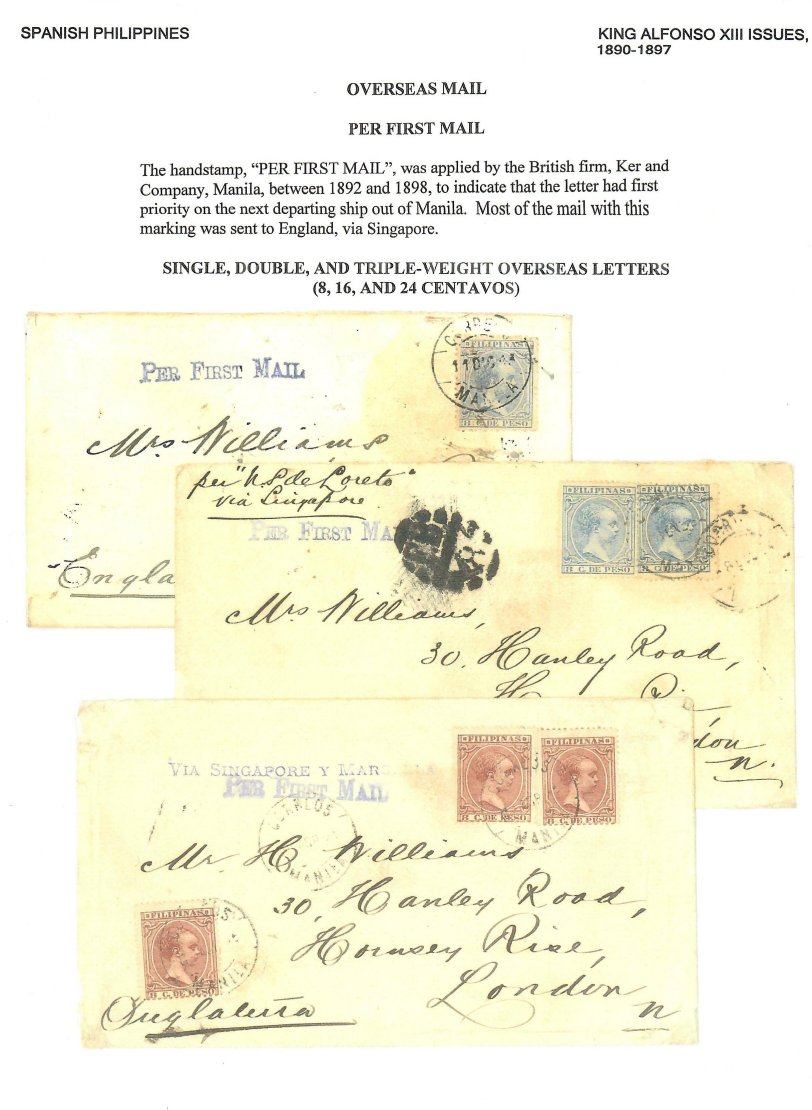 SPANISH PHILIPPINES
KING ALFONSO XIII ISSUES,
1890-1897
OVERSEAS MAIL
PER FIRST MAIL
The handstamp, “PER FIRST MAIL”, was applied by the British firm, Ker and
Company, Manila, between 1892 and 1898, to indicate that the letter had first
priority on the next departing ship out of Manila. Most of the mail with this
marking was sent to England, via Singapore.
SINGLE, DOUBLE, AND TRIPLE-WEIGHT OVERSEAS LETTERS
(8, 16, AND 24 CENTAVOS)
PER FIRST MAIL
FILIPINAS
MANILA
8 C. DE PESO
Mrs Williams
Engla
per "N.S. de Loreto"
via Singapore
PER FIRST MA
FILIPINAS FILIPINAS
8 C. DE PESO
C. DE PESO
Mrs Williams,
30, Hanley Road,
don
N.
VIA SINGAPORE Y MARS
PER FIRST MAIL
FILIPINAS FILIPINAS
8 C. DE PESO
8 C. DE PESO
CORREOS
MANILA
Mr H. Williams
30, Hanley Road,
Hornsey Rise,
London
N
FILIPINAS
8 C. DE PESO
MANILA
Inglaterra